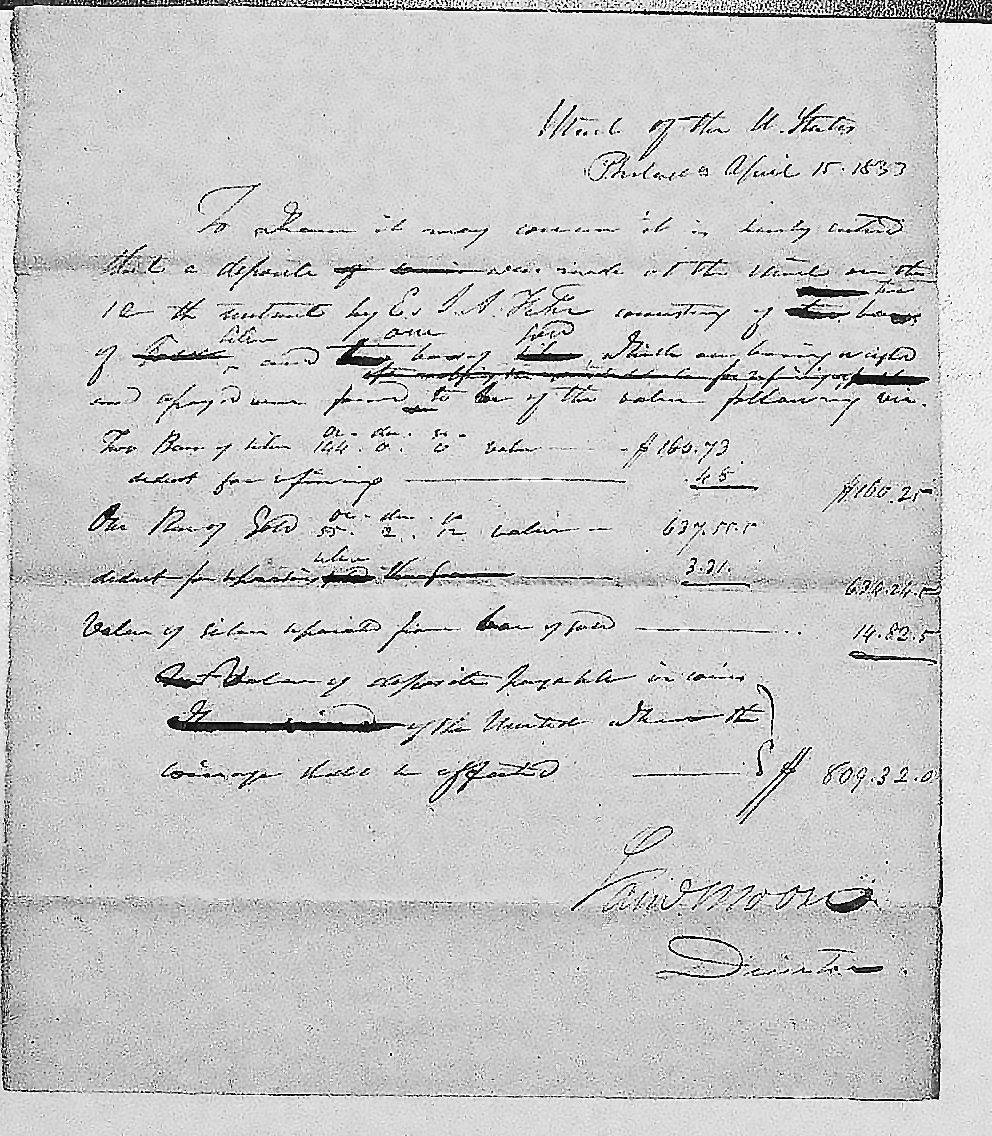 Mint of the U. States
Philad a April 15. 1833
To whom it may concern it is hereby certified
that a deposite was made at the Mint on the
two
12 th instant by consisting of bars
silver one gold
of and bar of which having weighed
and assayed were found to be of the value following viz.
oz - dw. gr -
Two Bars of silver 144. 0. 0 value $160.73
deduct for refining .48 $160.25
oz - dw. gr
One Bar of Gold 55. 2. 12 value 637.55.5
silver
deduct for separating 3.31. 634.24.5
Value of silver separated from bar of gold 14.82.5
Net Value of deposite payable in coins
of the United when the
coinage shall be effected $ 809.32.0
Sam. Moore
Director.